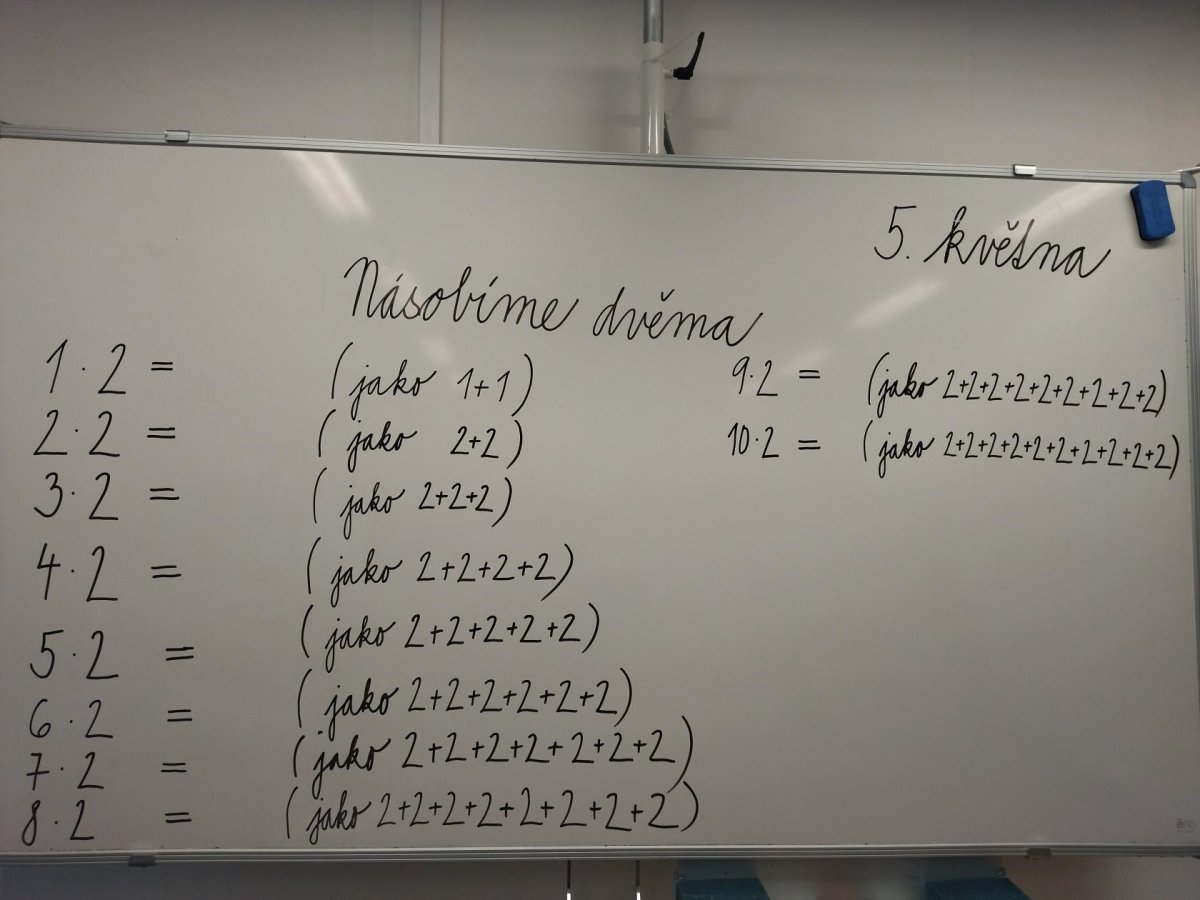 5. května
Násobíme dvěma
1·2 = (jako 1+1)
2·2 = (jako 2+2)
3·2 = (jako 2+2+2)
4·2 = (jako 2+2+2+2)
5·2 = (jako 2+2+2+2+2)
6·2 = (jako 2+2+2+2+2+2)
7·2 = (jako 2+2+2+2+2+2+2)
8·2 = (jako 2+2+2+2+2+2+2+2)
9·2 = (jako 2+2+2+2+2+2+2+2+2)
10·2 = (jako 2+2+2+2+2+2+2+2+2+2)